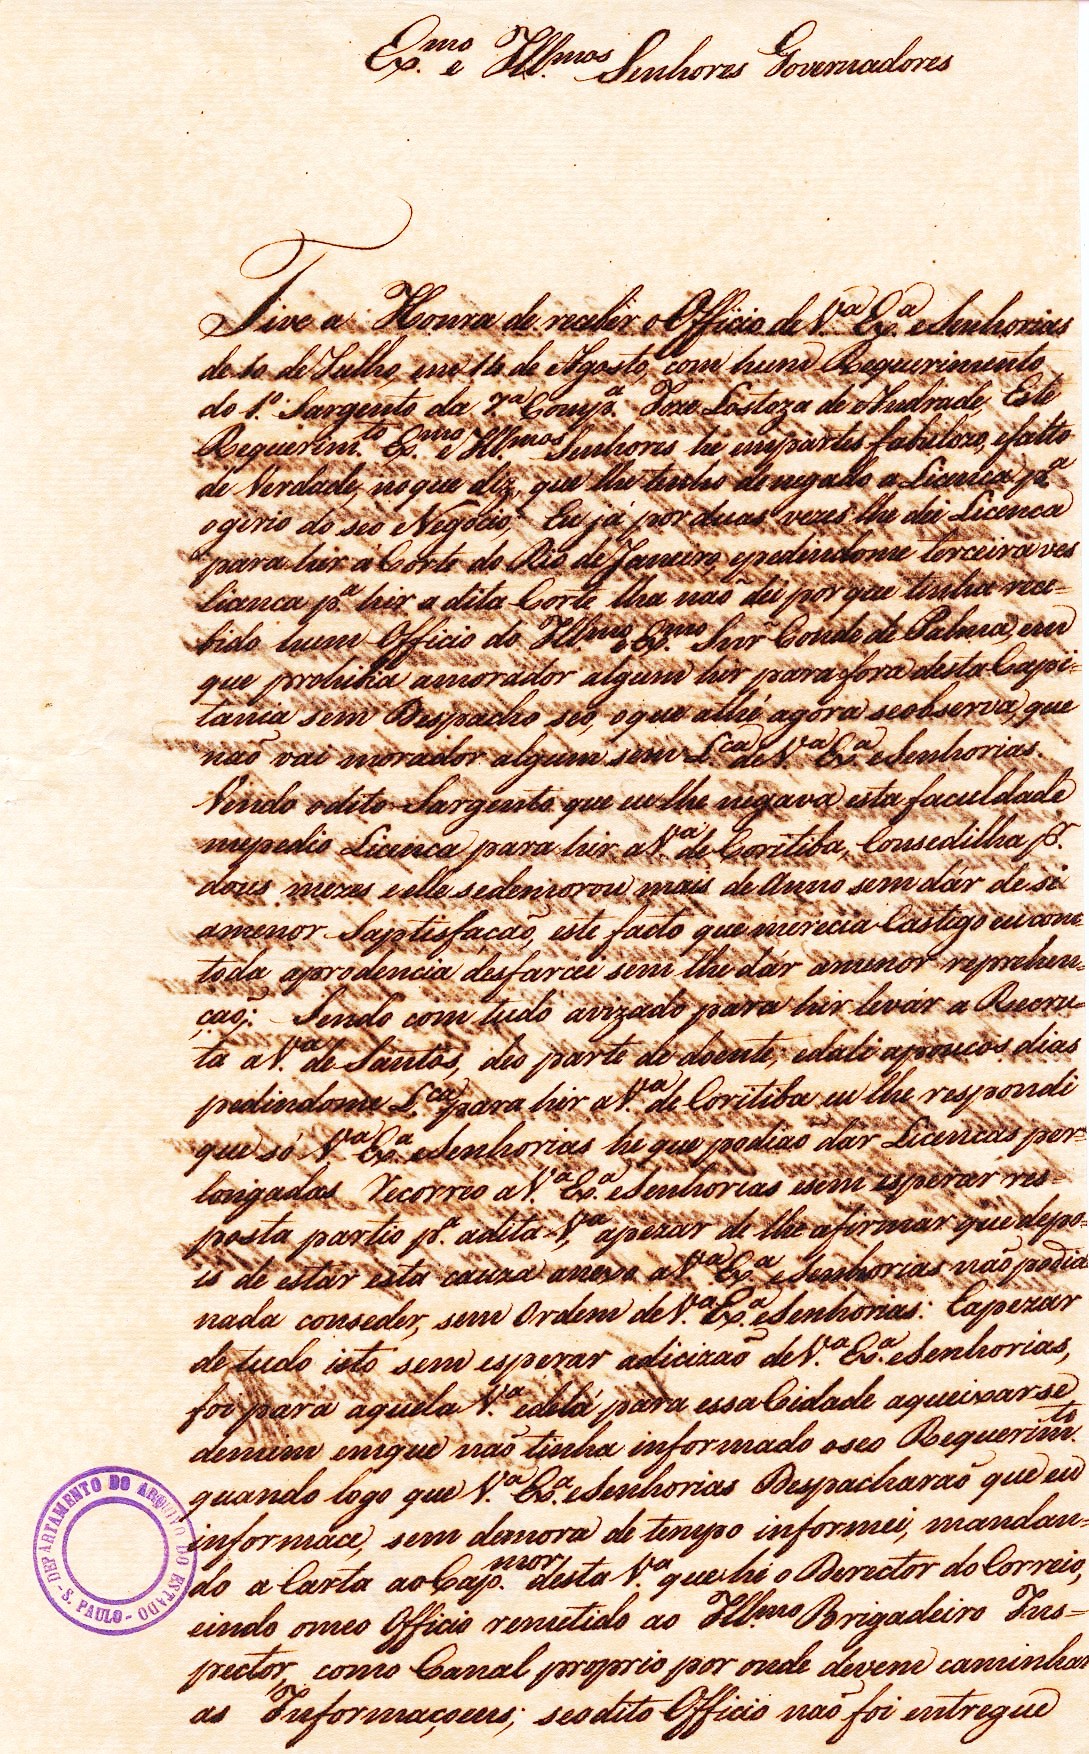 Ex.mo e Ill.mos Senhores Governadores
Tive a Honra de recebêr o Officio de V.a Ex.a e Senhorias
de 10 de Julho, em 14 de Agosto, com hum Requerimento
do 1.o Sargento da 7.a Comp.a Joze Lostoza de Andrade, Este
Requerim.to Ex.mo e Ill.mos Senhores he empartes fabulozo, efalto
de Verdade, noque diz, que lhe tenho denegado a Licenca p.a
ogirio do seo Negocio, Eu já por duas vezes lhe dei Licenca
para hir a Corte do Rio de Janeiro, epedindome terceira ves
licanca p.a hir a dita Corte lha não dei porque tinha rece-
bido hum Officio do Ill.mo e Ex.mo Snr Conde de Palma, em
que prohibia amorador algum hir para fora desta Capi-
tania sem Despacho seo, oque athé agora seobserva, que
naõ vai morador algum sem L.ca de V.a Ex.a e Senhorias.
Vendo odito Sargento que eu lhe negava esta faculdade
mepedio Licenca para hir a V.a de Coritiba, Consedilha p.r
dous mezes e elle sedemorou mais de Anno sem dár de si
amenor Saptisfacaõ, este facto que merecia Castigo eu com
toda aprodencia desfarcei sem lhe dár amenor reprehen-
çaõ: Sendo com tudo avizado para hir levár a Recru-
ta a V.a de Santos, deo parte de doente, edali apoucos dias
pedindome L.ca para hir a V.a de Coritiba eu lhe respondi
que só V.a Ex.a e Senhorias he que podiaõ dár Licencas per-
longadas Recorreo a V.a Ex.a e Senhorias esem esperar res-
posta partio p.a adita V.a apezar de lhe afirmar que depo-
is de estár esta cauza anexa a V.a Ex.a e Senhorias naõ podia
nada conseder, sem Ordem de V.a Ex.a e Senhorias: Eapezar
de tudo isto sem esperar adicizaõ de V.a Ex.a e Senhorias,
foi para aquela V.a edelá para essa Cidade aqueixarse
demim emque naõ tinha informado oseo Requerim.to
quando logo que V.a Ex.a e Senhorias Despacharaõ que eu
informáce, sem demora de tempo informei, mandan-
do a Carta ao Cap.m mor desta V.a que hé o Derector do Correio,
eindo omeo Officio remetido ao Ill.mo Brigadeiro Ins-
pector, como Canal proprio por onde devem caminhar
as Informaçoens; seodito Officio naõ foi entregue
DEPARTAMENTO DO ARQUIVO DO ESTADO
- S. PAULO -